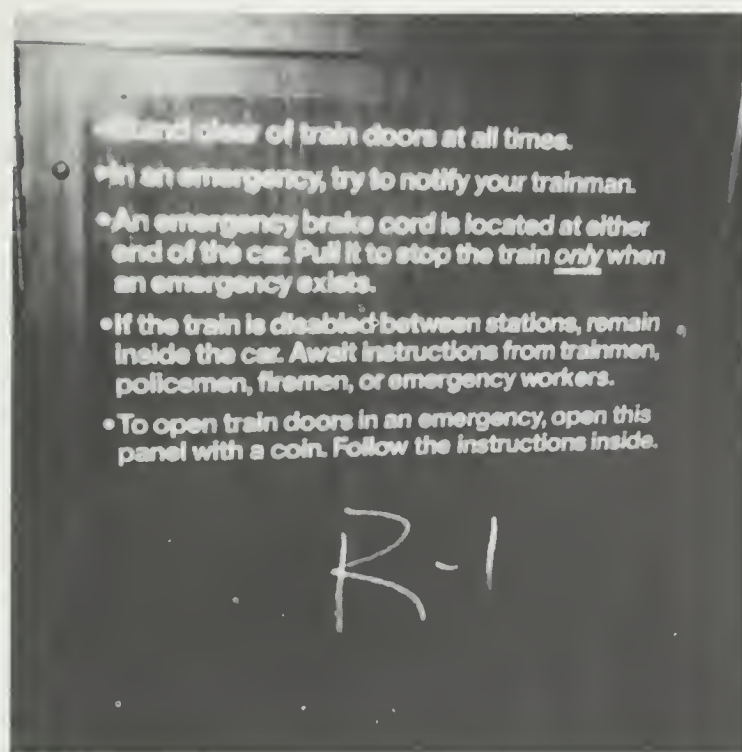 •Stand clear of train doors at all times.
•In an emergency, try to notify your trainman.
•An emergency brake cord is located at either
end of the car. Pull it to stop the train only when
an emergency exists.
•If the train is disabled between stations, remain
inside the car. Await instructions from trainmen,
policemen, firemen, or emergency workers.
•To open train doors in an emergency, open this
panel with a coin. Follow the instructions inside.
R-1